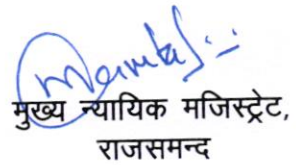 मुख्य न्यायिक मजिस्ट्रेट,
राजसमन्द